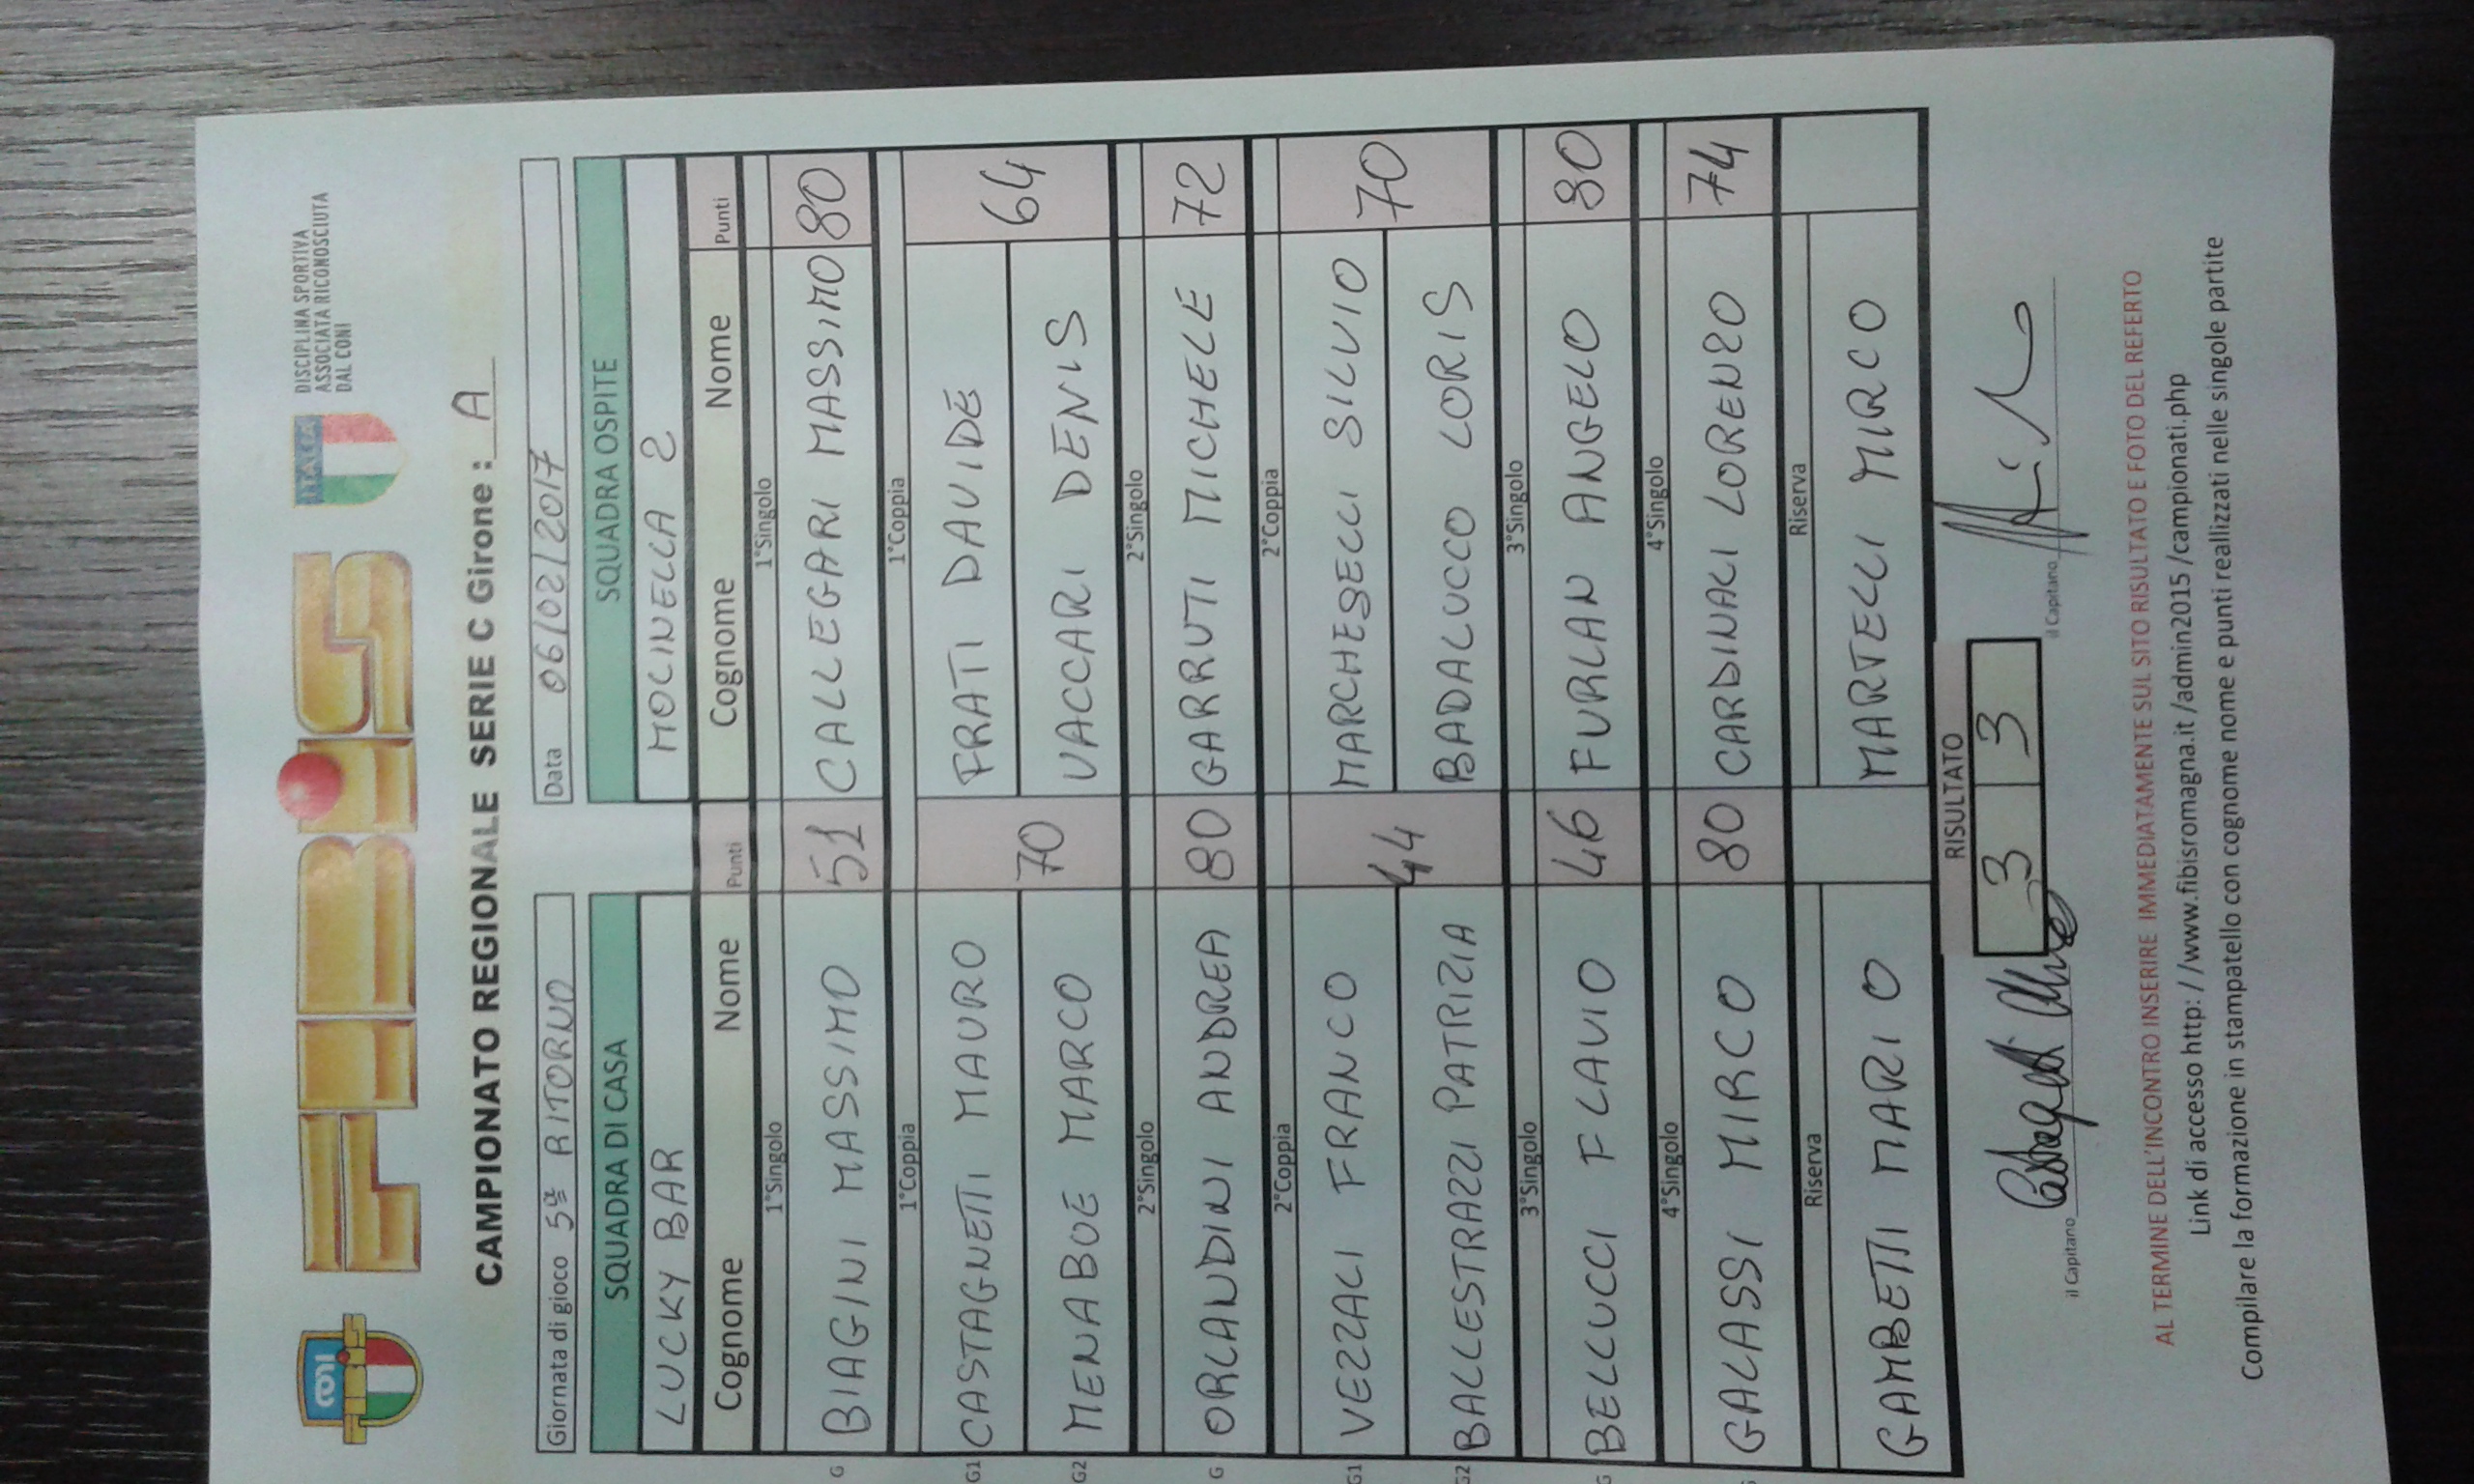 CONI
FIBiS
ITALIA
DISCIPLINA SPORTIVA
ASSOCIATA RICONOSCIUTA
DAL CONI
CAMPIONATO REGIONALE SERIE C Girone : A
Giornata di gioco 5ª RITORNO Data 06/02/2017
SQUADRA DI CASA SQUADRA OSPITE
LUCKY BAR MOLINELLA 2
Cognome Nome Punti Cognome Nome Punti
1°Singolo 1°Singolo
G BIAGINI MASSIMO 51 CALLEGARI MASSIMO 80
1°Coppia 1°Coppia
G1 CASTAGNETTI MAURO FRATI DAVIDE
70 64
G2 MENABUE MARCO VACCARI DENIS
2°Singolo 2°Singolo
G ORLANDINI ANDREA 80 GARRUTI MICHELE 72
2°Coppia 2°Coppia
G1 VEZZALI FRANCO MARCHESELLI SILVIO
44 70
G2 BALLESTRAZZI PATRIZIA BADALUCCO LORIS
3°Singolo 3°Singolo
G BELLUCCI FLAVIO 46 FURLAN ANGELO 80
4°Singolo 4°Singolo
GALASSI MIRCO 80 CARDINALI LORENZO 74
Riserva Riserva
GAMBETTI MARIO MARTELLI MIRCO
RISULTATO
3 3
il Capitano il Capitano
AL TERMINE DELL'INCONTRO INSERIRE IMMEDIATAMENTE SUL SITO RISULTATO E FOTO DEL REFERTO
Link di accesso http: / /www.fibisromagna.it /admin2015 /campionati.php
Compilare la formazione in stampatello con cognome nome e punti reallizzati nelle singole partite